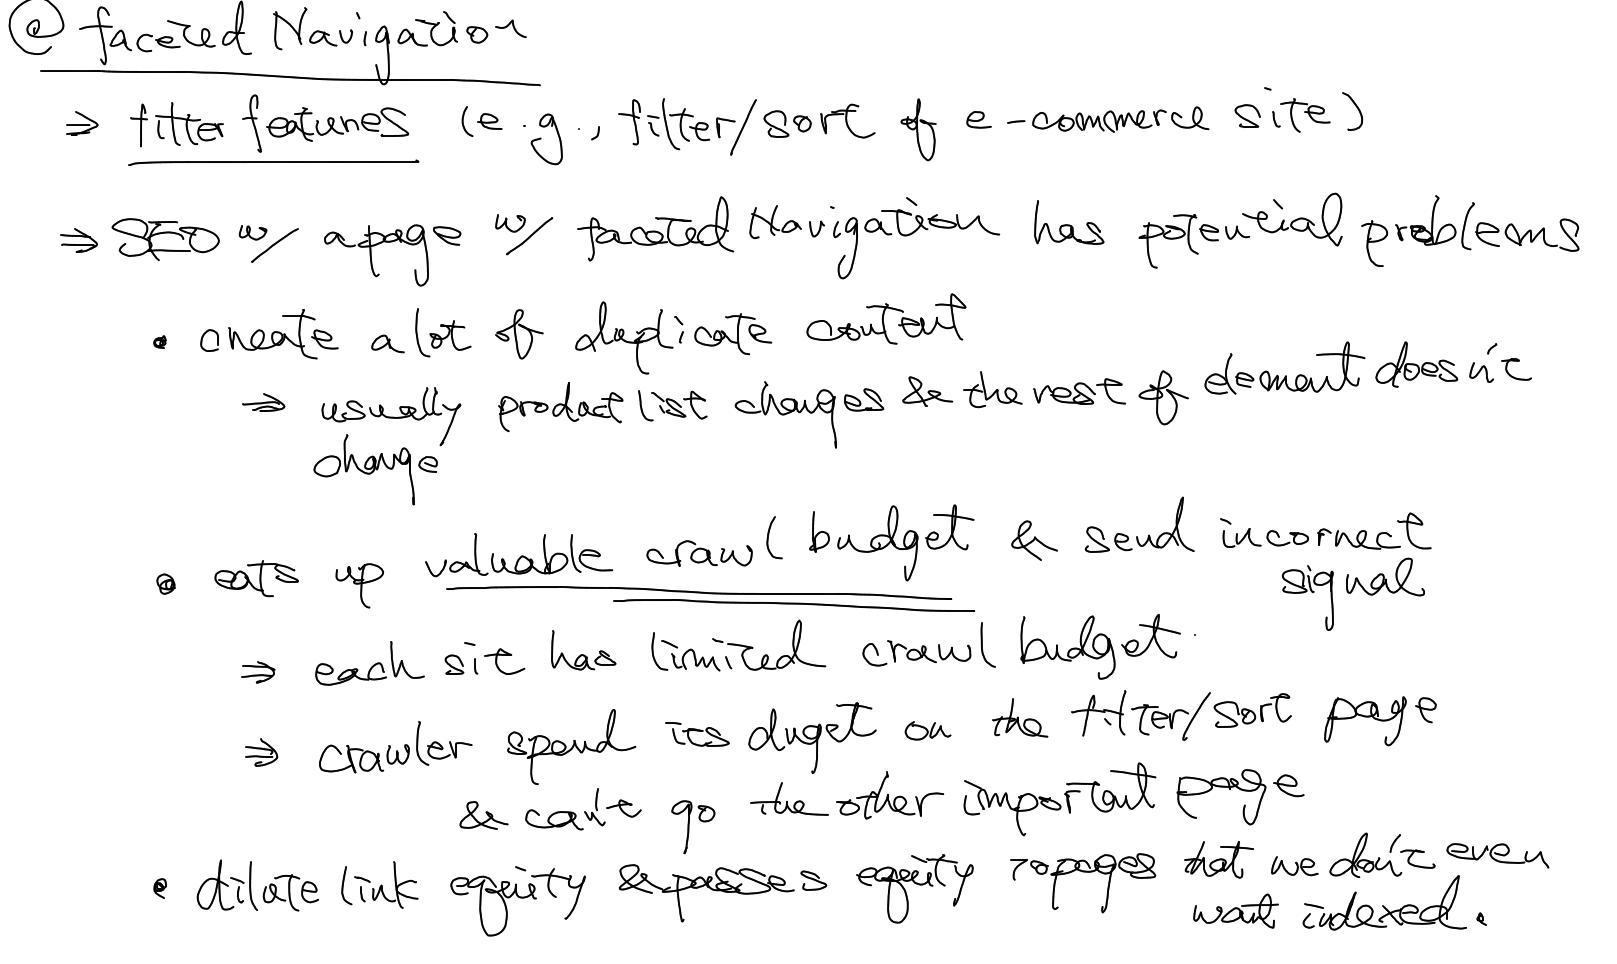 @ faceted Navigation
⇒ filter features (e.g., filter/sort of e-commerce site)
⇒ SEO w/ a page w/ faceted Navigation has potential problems
• create a lot of duplicate content
⇒ usually product list changes & the rest of element doesn't
change
• eats up valuable crawl budget & send incorrect
signal
⇒ each sit has limited crawl budget
⇒ crawler spend its duget on the filter/sort page
& can't go the other important page
• dilate link equity & passes equity to pages that we don't even
want indexed.